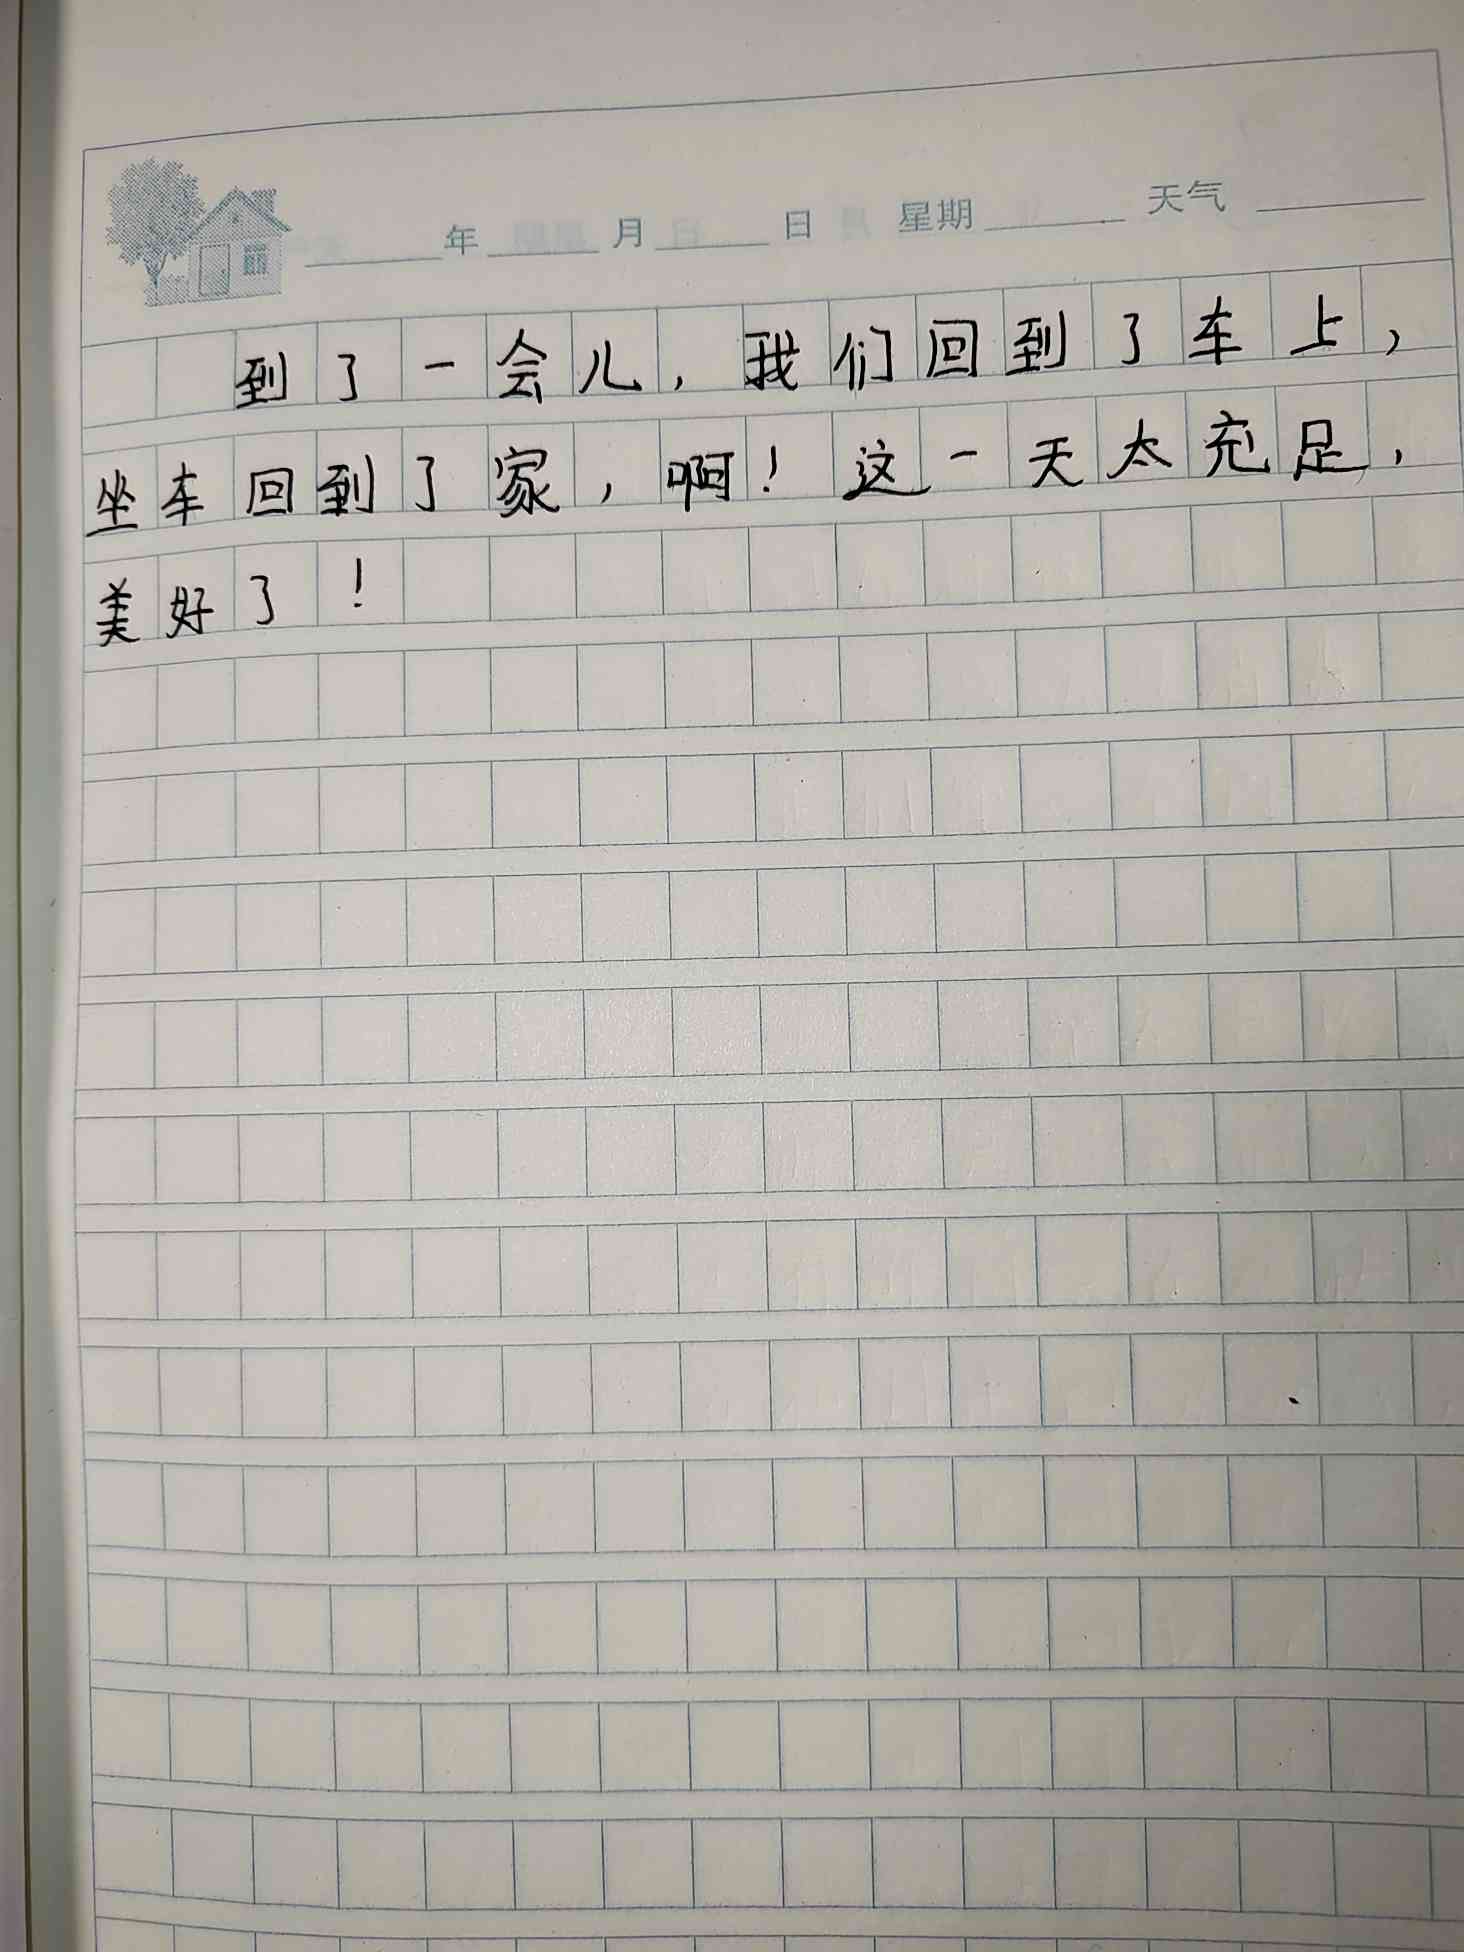 年 月 日 星期 天气
到了一会儿，我们回到了车上，
坐车回到了家，啊！这一天太充足，
美好了！